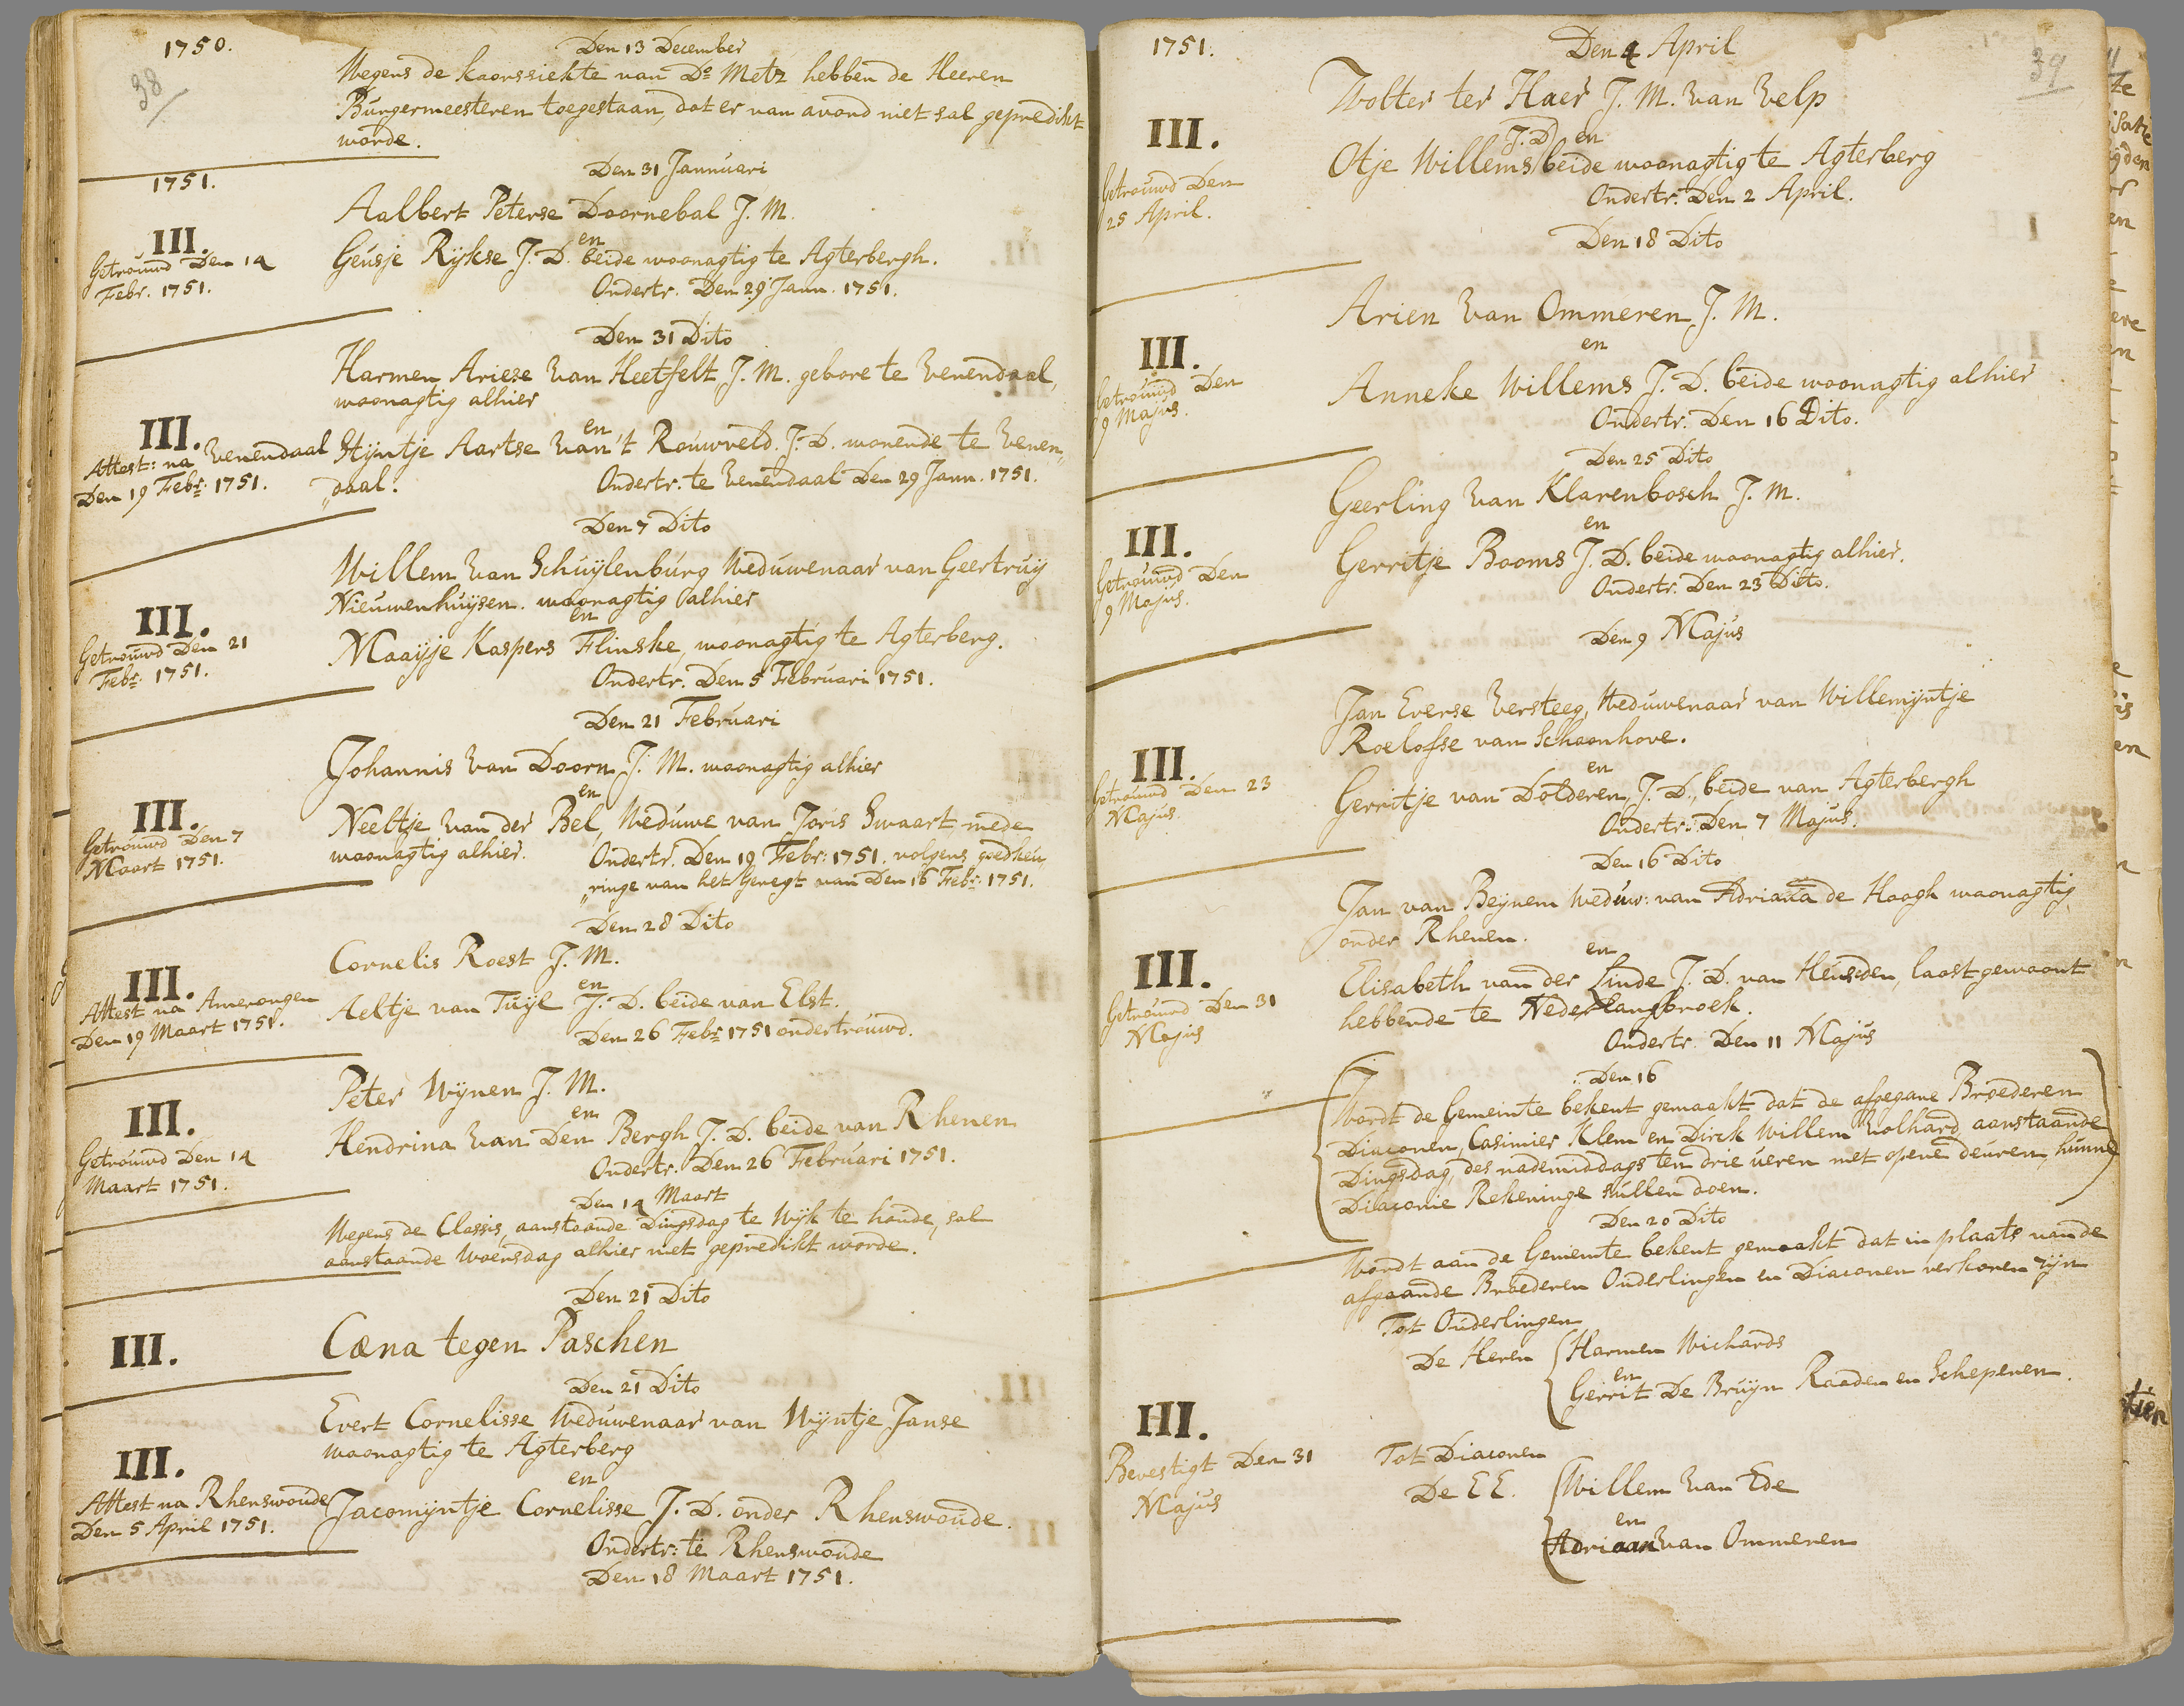 1750.
38
Den 13 December
Wegens de koorssiekte van Do Metz hebben de Heeren
Burgermeesteren toegestaan, dat er van avond niet sal gepredikt
worde.
1751.
Den 31 Jannuari
Aalbert Peterse Doornebal J. M.
en
III.
Getrouwd Den 14
Febr. 1751.
Geusje Rijkse J. D. beide woonagtig te Agterbergh.
Ondertr. Den 29 Jann. 1751.
Den 31 Dito
Harmen Ariese van Heetfelt J. M. gebore te Venendaal,
woonagtig alhier
en
III.
Attest: na Venendaal
Den 19 Febr: 1751.
Stijntje Aartse van 't Rouwveld J. D. wonende te Venen„
„daal.
Ondertr. te Venendaal Den 29 Jann. 1751.
Den 7 Dito
Willem van Schuijlenburg Weduwenaar van Geertruij
Nieuwenhuijsen. woonagtig alhier
en
III.
Getrouwd Den 21
Febr: 1751.
Maaijje Kaspers Flinske, woonagtig te Agterberg.
Ondertr. Den 5 Februari 1751.
Den 21 Februari
Johannis van Doorn J. M. woonagtig alhier
en
III.
Getrouwd Den 7
Maart 1751.
Neeltje van der Bel, Weduwe van Joris Swaart mede
woonagtig alhier.
Ondertr. Den 19 Febr: 1751. volgens goedkeu„
„ringe van het Geregt van Den 16 Febr: 1751.
Den 28 Dito
Cornelis Roest J. M.
en
III.
Attest na Amerongen
Den 19 Maart 1751.
Aeltje van Tuijl J. D. beide van Elst.
Den 26 Febr 1751 ondertrouwd.
Peter Wijnen J. M.
en
III.
Getrouwd Den 14
Maart 1751.
Hendrina van Den Bergh J. D. beide van Rhenen
Ondertr. Den 26 Februari 1751.
Den 14 Maart
Wegens de Classis, aanstaande Dingsdag te Wijk te houde, sal
aanstaande Woensdag alhier niet gepredikt worde.
Den 21 Dito
III.
Cæna tegen Paschen
Den 21 Dito
Evert Cornelisse Weduwenaar van Wijntje Janse
woonagtig te Agterberg
en
III.
Attest na Rhenswoude
Den 5 April 1751.
Jacomijntje Cornelisse J. D. onder Rhenswoude.
Ondertr: te Rhenswoude
Den 18 Maart 1751.
1751.
39
Den 4 April
Wolter ter Haer J. M. van Velp
J. D. en
III.
Getrouwd Den
25 April.
Otje Willems beide woonagtig te Agterberg
Ondertr. Den 2 April.
Den 18 Dito
Arien van Ommeren J. M.
en
III.
Getrouwd Den
9 Majus.
Anneke Willems J. D. beide woonagtig alhier
Ondertr. Den 16 Dito.
Den 25 Dito
Geerling van Klarenbosch J. M.
en
III.
Getrouwd Den
9 Majus.
Gerritje Booms J. D. beide woonagtig alhier.
Ondertr. Den 23 Ditto.
Den 9 Majus
Jan Everse Versteeg, Weduwenaar van Willemijntje
Roelofse van Schoonhove.
en
III.
Getrouwd Den 23
Majus.
Gerritje van Dolderen, J. D., beide van Agterbergh
Ondertr: Den 7 Majus.
Den 16 Dito
Jan van Beijnem Weduw: van Adriana de Hoogh woonagtig
onder Rhenen.
en
III.
Getrouwd Den 31
Majus
Elisabeth van der Linde J. D. van Heusden, laast gewoont
hebbende te Nederlangbroek.
Ondertr. Den 11 Majus
Den 16
Wordt de Gemeinte bekent gemaakt dat de afgegane Broederen
Diaconen, Casimier Klem en Dirck Willem Volhard aanstaande
Dingsdag, des nademiddags ten drie ueren met opene deuren, hunne
Diaconie Rekeninge sullen doen.
Den 20 Dito
Wordt aan de Gemeinte bekent gemaakt dat in plaats van de
afgaande Broederen Ouderlingen en Diaconen verkoren zijn
Tot Ouderlingen
De Heren
Harmen Wichards
en
Gerrit De Bruijn Raaden en Schepenen.
III.
Bevestigt Den 31
Majus
Tot Diaconen
De E E.
Willem van Ede
en
Adriaan van Ommeren